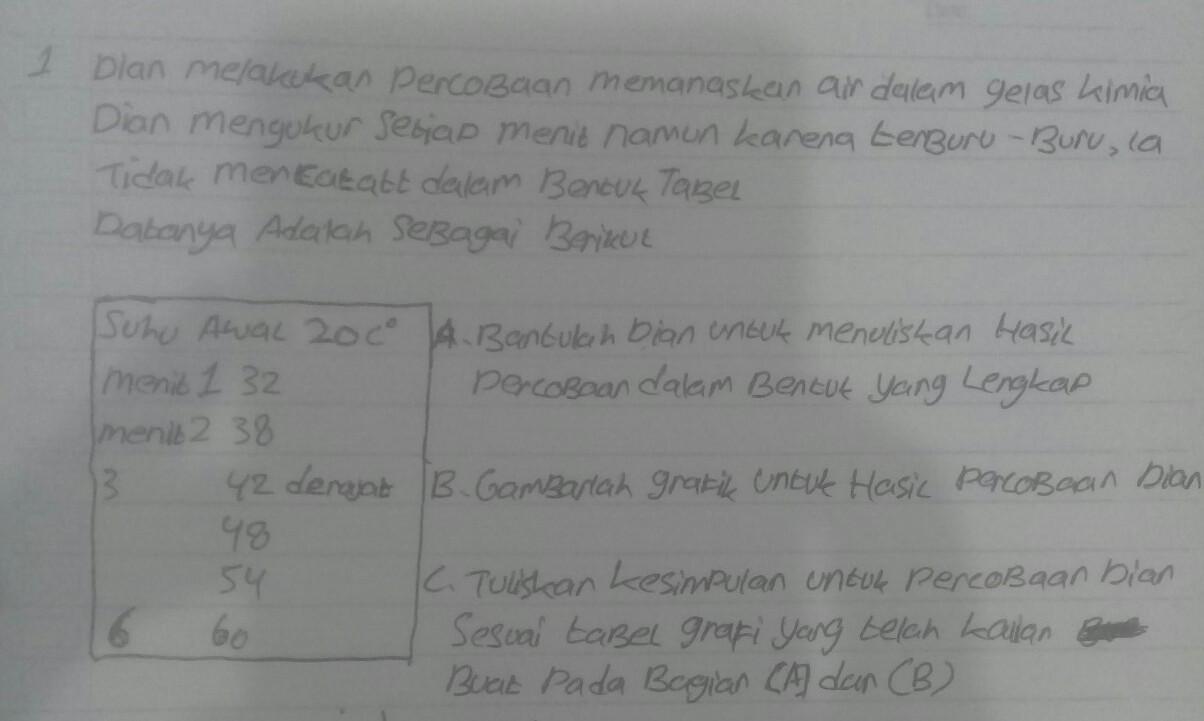 1 Dian melakukan percoBaan memanaskan air dalam gelas kimia
Dian mengukur setiap menit namun karena terBuru-Buru, ia
Tidak mencatatt dalam Bentuk TaBel
Datanya Adalah SeBagai Berikut
Suhu Awal 20C°
menit 1 32
menit 2 38
3 42 derajat
48
54
6 60
A. Bantulah Dian untuk menuliskan Hasil
percoBaan dalam Bentuk yang Lengkap
B. GamBarlah grafik untuk Hasil percoBaan Dian
C. Tuliskan kesimpulan untuk percoBaan Dian
Sesuai taBel grafi yang telah kalian
Buat Pada Bagian (A) dan (B)